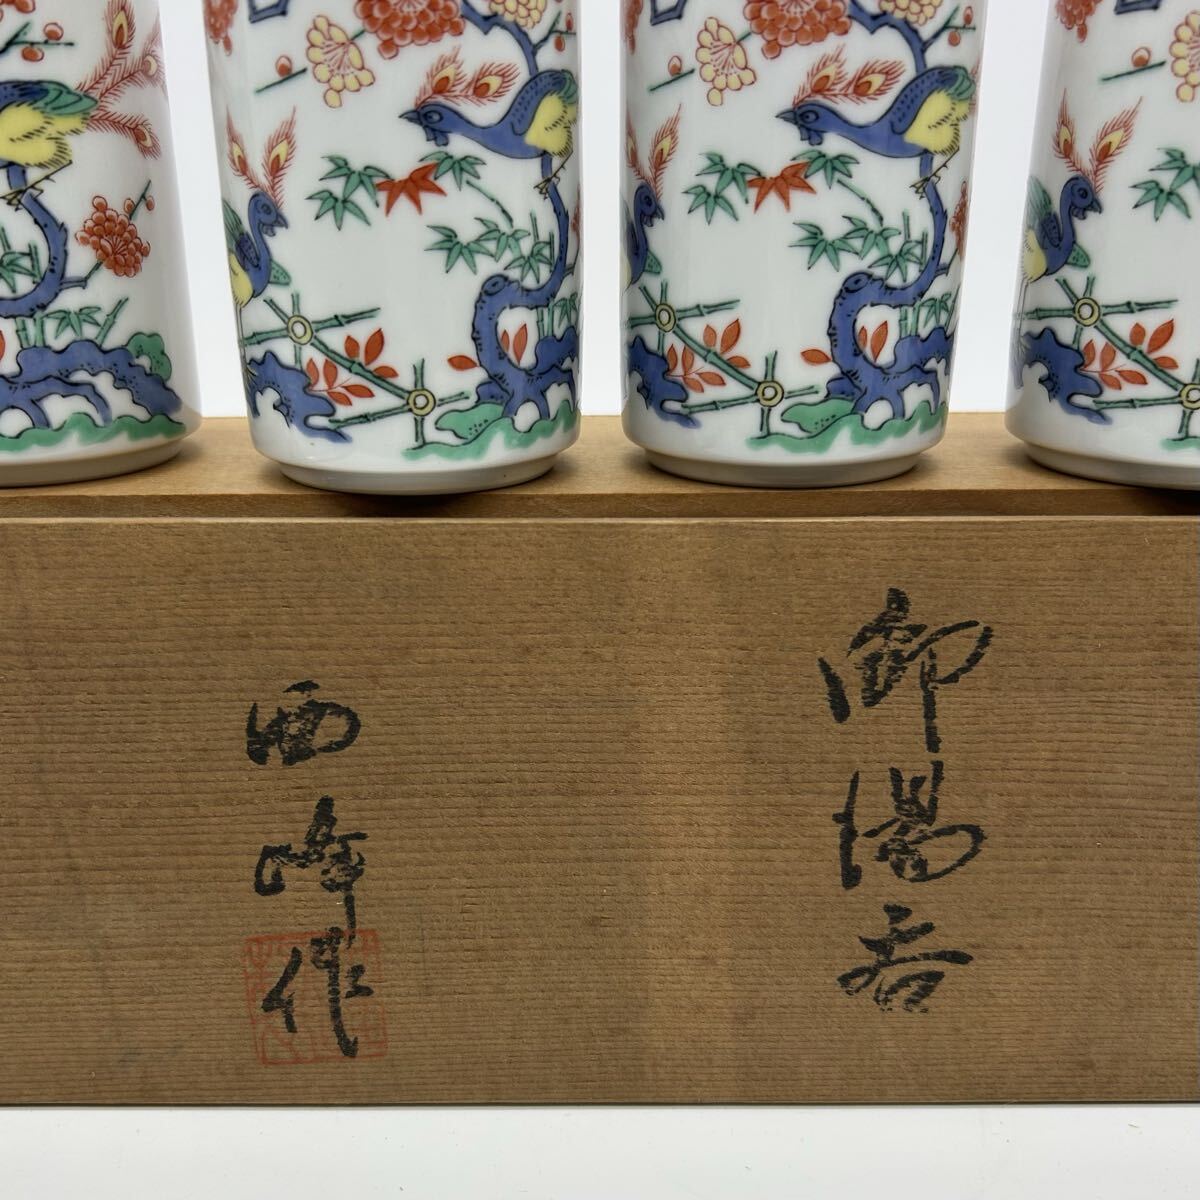 御湯呑
西峰作